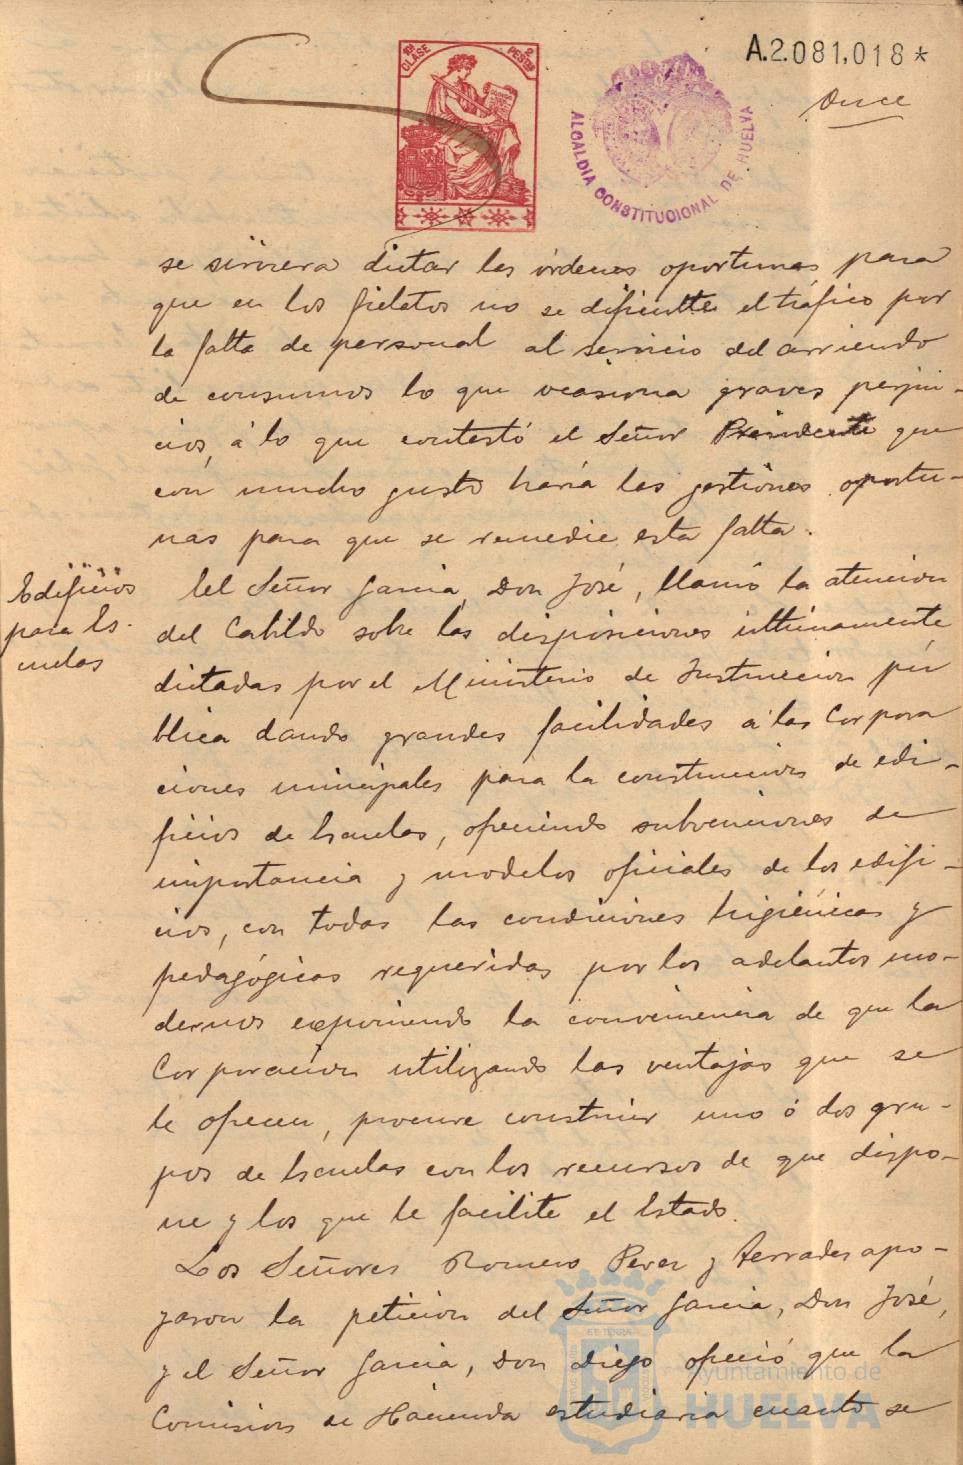 10ª CLASE
2 PESETAS
A.2.081,018*
Once
ALCALDIA CONSTITUCIONAL DE HUELVA
se sirviera dictar las órdenes oportunas para
que en los fielatos no se dificulte el tráfico por
la falta de personal al servicio del arriendo
de consumos lo que ocasiona graves perjui-
cios, á lo que contestó el Señor Presidente que
con mucho gusto haria las gestiones oportu-
nas para que se remedie esta falta.
Edificios
para Es-
cuelas
El Señor Garcia, Don José, llamó la atencion
del Cabildo sobre las disposiciones ultimamente
dictadas por el Ministerio de Instruccion pú
blica dando grandes facilidades á las Corpora
ciones municipales para la construccion de edi-
ficios de Escuelas, ofreciendo subvenciones de
importancia y modelos oficiales de los edifi-
cios, con todas las condiciones higiénicas y
pedagógicas requeridas por los adelantos mo-
dernos exponiendo la conveniencia de que la
Corporación utilizando las ventajas que se
le ofrecen, procure construir uno ó dos gru-
pos de Escuelas con los recursos de que dispo-
ne y los que le facilite el Estado.
Los Señores Romero Perez y Terrades apo-
yaron la peticion del Señor Garcia, Don José,
y el Señor Garcia, Don Diego ofreció que la
Comision de Hacienda estudiaria cuanto se
Ayuntamiento de
HUELVA